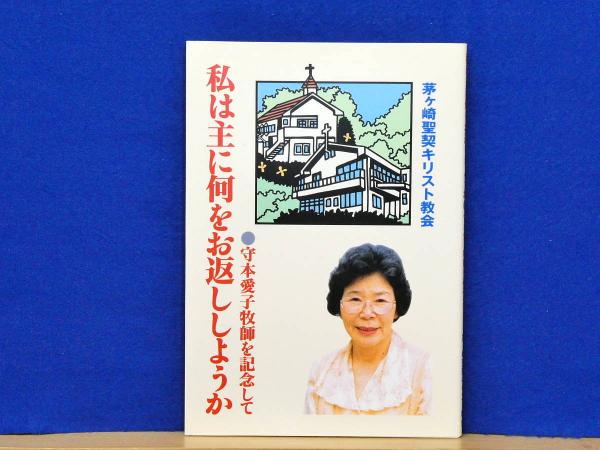 茅ヶ崎聖契キリスト教会
私は主に何をお返ししようか
●守本愛子牧師を記念して